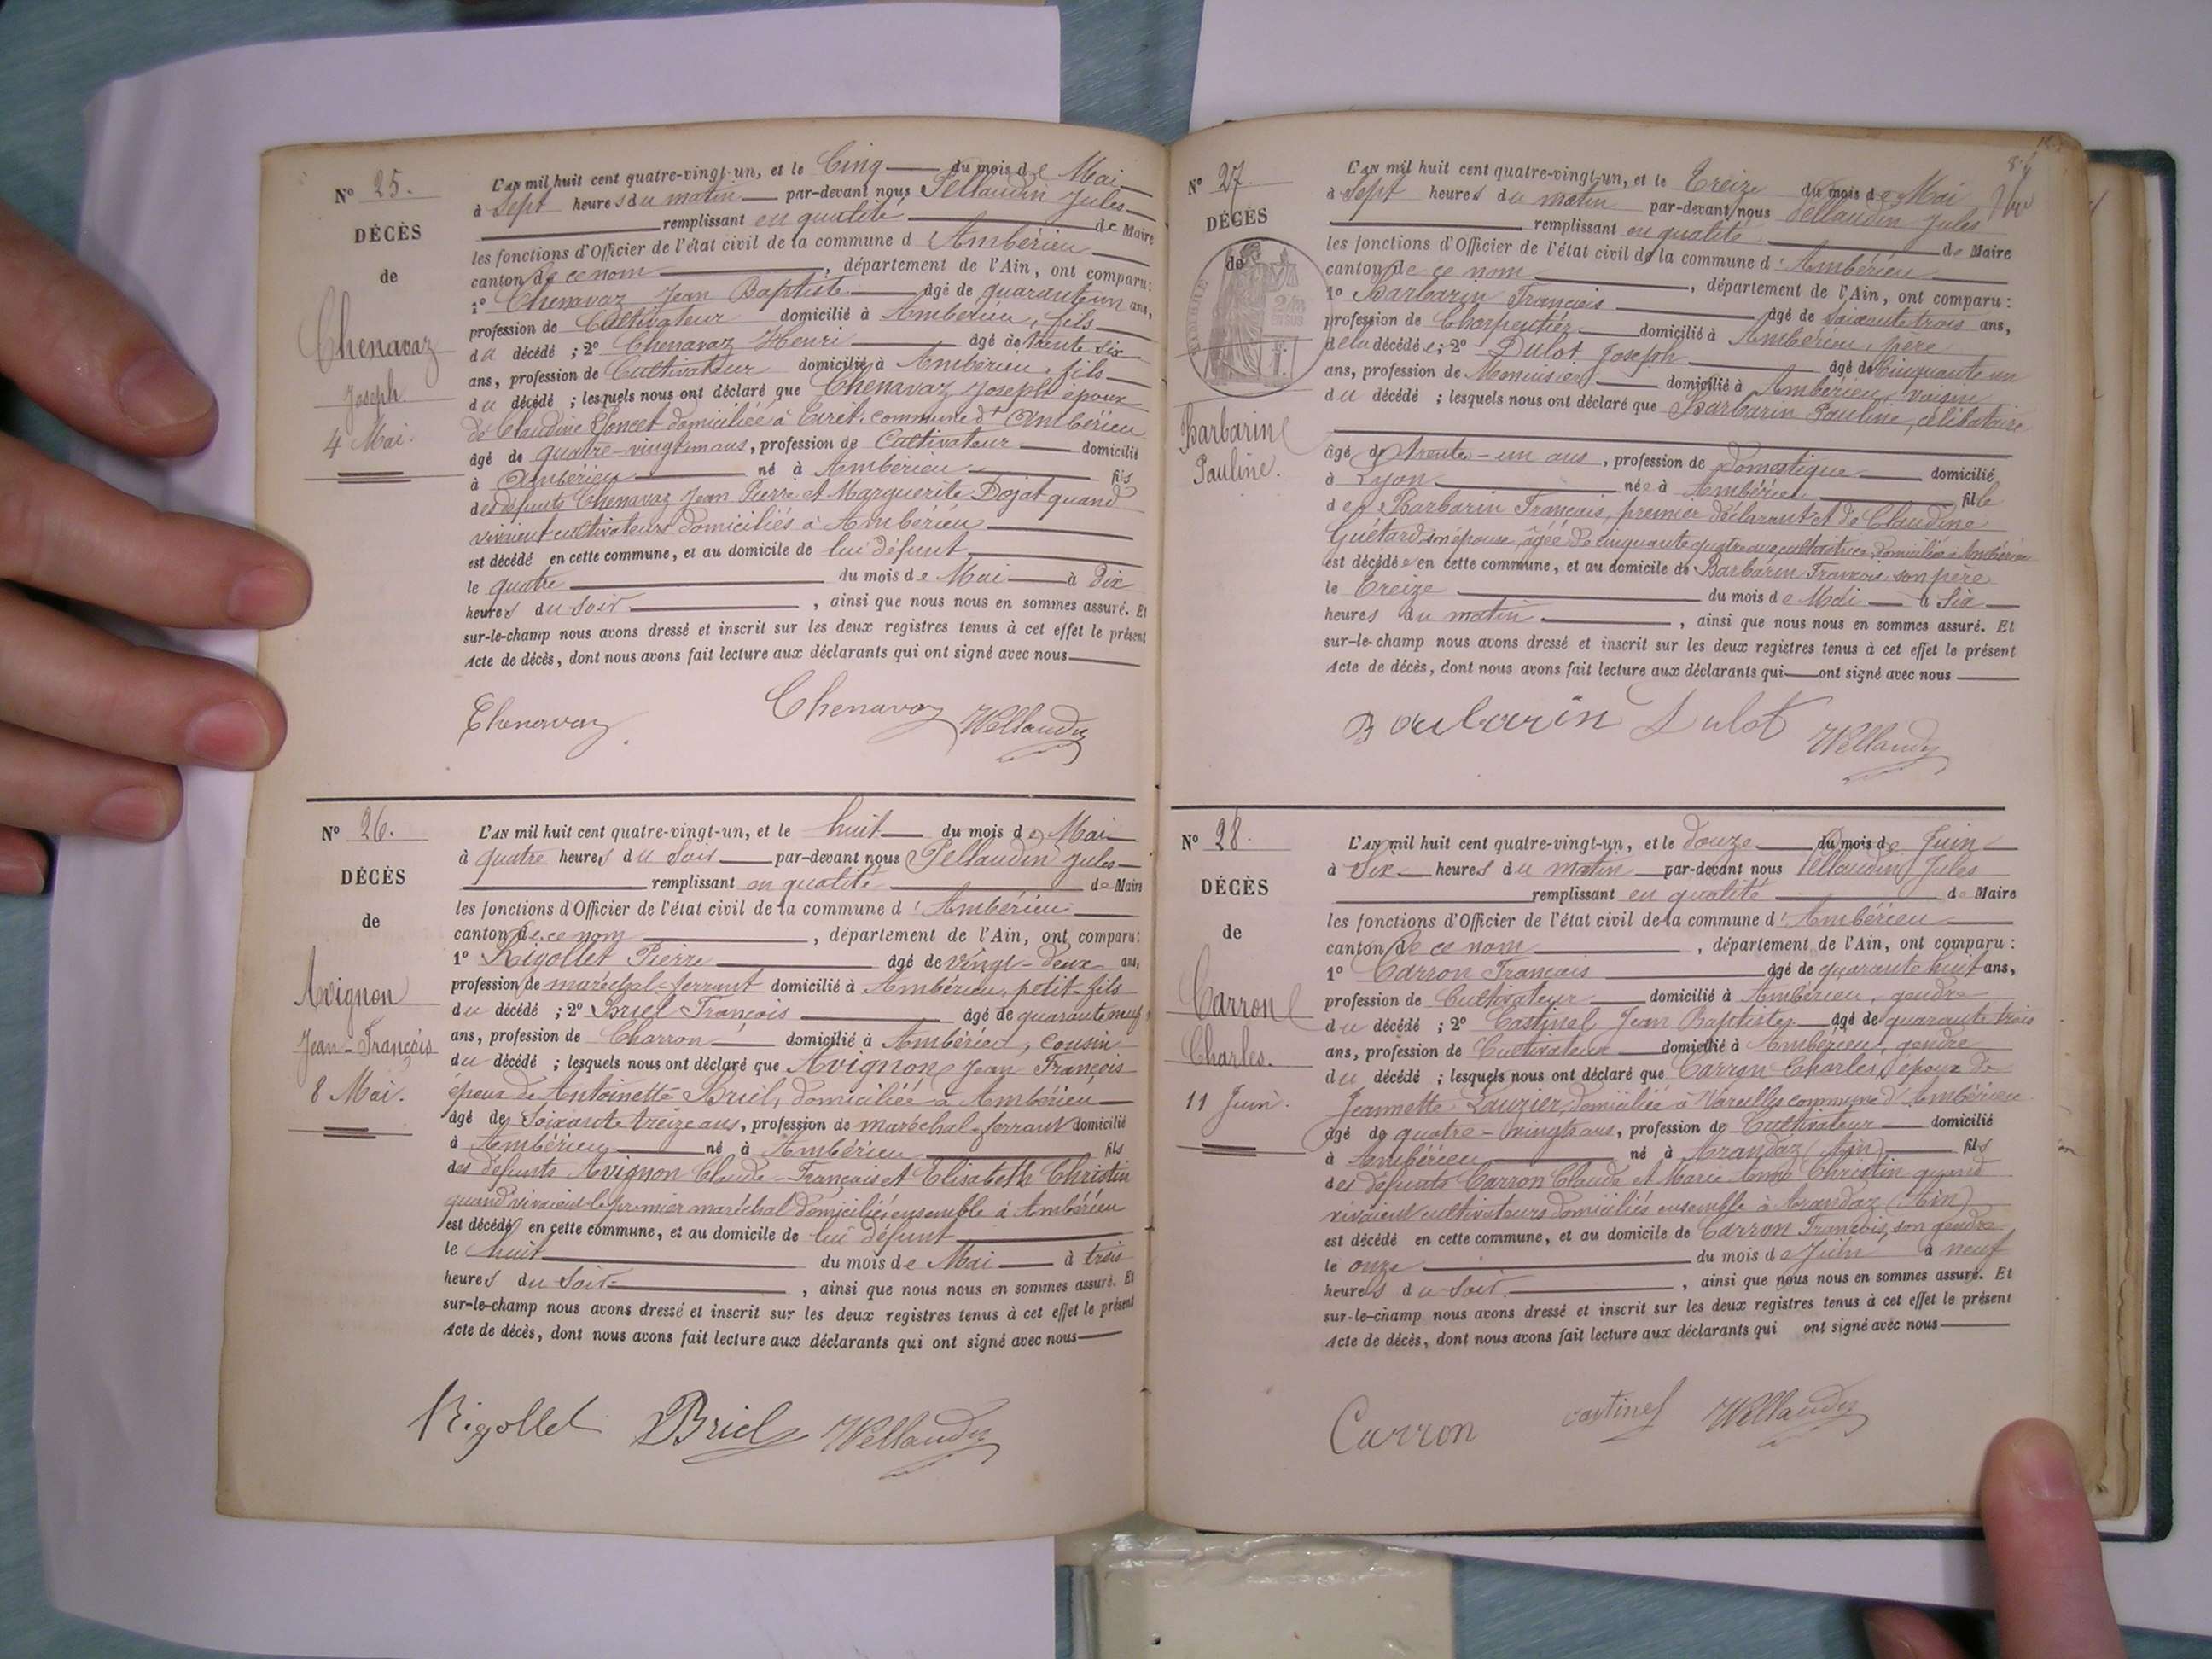 N° 25.
DÉCÈS
de
Chenavaz
Joseph
4 Mai.
L'AN mil huit cent quatre-vingt-un, et le Cinq du mois de Mai
à Sept heures du matin par-devant nous Pellaudin Jules
remplissant en qualité de Maire
les fonctions d'Officier de l'état civil de la commune d'Ambérieu
canton de ce nom, département de l'Ain, ont comparu:
1° Chenavaz Jean Baptiste âgé de quarante un ans,
profession de Cultivateur domicilié à Ambérieu, fils
du décédé; 2° Chenavaz Henri âgé de trente six
ans, profession de Cultivateur domicilié à Ambérieu, fils
du décédé; lesquels nous ont déclaré que Chenavaz Joseph époux
de Claudine Poncet domiciliée à Tiret, commune d'Ambérieu
âgé de quatre-vingt un ans, profession de Cultivateur domicilié
à Ambérieu né à Ambérieu fils
des défunts Chenavaz Jean Pierre et Marguerite Dojat quand
vivaient cultivateurs domiciliés à Ambérieu
est décédé en cette commune, et au domicile de lui défunt
le quatre du mois de Mai à Dix
heures du soir, ainsi que nous nous en sommes assuré. Et
sur-le-champ nous avons dressé et inscrit sur les deux registres tenus à cet effet le présent
Acte de décès, dont nous avons fait lecture aux déclarants qui ont signé avec nous
Chenavaz Chenavaz Pellaudin
N° 26.
DÉCÈS
de
Avignon
Jean-François
8 Mai.
L'AN mil huit cent quatre-vingt-un, et le huit du mois de Mai
à quatre heures du soir par-devant nous Pellaudin Jules
remplissant en qualité de Maire
les fonctions d'Officier de l'état civil de la commune d'Ambérieu
canton de ce nom, département de l'Ain, ont comparu:
1° Rigollet Pierre âgé de vingt-deux ans,
profession de maréchal-ferrant domicilié à Ambérieu, petit-fils
du décédé; 2° Briel François âgé de quarante neuf
ans, profession de Charron domicilié à Ambérieu, cousin
du décédé; lesquels nous ont déclaré que Avignon Jean François
époux de Antoinette Briel, domiciliée à Ambérieu
âgé de Soixante treize ans, profession de maréchal-ferrant domicilié
à Ambérieu né à Ambérieu fils
des défunts Avignon Claude-François et Elisabeth Christin
quand vivaient le premier maréchal domiciliés ensemble à Ambérieu
est décédé en cette commune, et au domicile de lui défunt
le huit du mois de Mai à trois
heures du soir, ainsi que nous nous en sommes assuré. Et
sur-le-champ nous avons dressé et inscrit sur les deux registres tenus à cet effet le présent
Acte de décès, dont nous avons fait lecture aux déclarants qui ont signé avec nous
Rigollet Briel Pellaudin
N° 27
DÉCÈS
de
TIMBRE
Barbarin
Pauline.
L'AN mil huit cent quatre-vingt-un, et le Treize du mois de Mai
à Sept heures du matin par-devant nous Pellaudin Jules
remplissant en qualité de Maire
les fonctions d'Officier de l'état civil de la commune d'Ambérieu
canton de ce nom, département de l'Ain, ont comparu:
1° Barbarin François âgé de Soixante trois ans,
profession de Charpentier domicilié à Ambérieu, père
de la décédée; 2° Dulot Joseph âgé de Cinquante un
ans, profession de Menuisier domicilié à Ambérieu, voisin
du décédé; lesquels nous ont déclaré que Barbarin Pauline, célibataire
âgé de trente-un ans, profession de Domestique domicilié
à Lyon née à Ambérieu fille
des Barbarin François, premier déclarant et de Claudine
Guétard, son épouse, âgée de cinquante quatre ans cultivatrice, domiciliée à Ambérieu
est décédée en cette commune, et au domicile de Barbarin François son père
le Treize du mois de Mai à Six
heures du matin, ainsi que nous nous en sommes assuré. Et
sur-le-champ nous avons dressé et inscrit sur les deux registres tenus à cet effet le présent
Acte de décès, dont nous avons fait lecture aux déclarants qui ont signé avec nous
Barbarin Dulot Pellaudin
N° 28.
DÉCÈS
de
Carron
Charles.
11 Juin.
L'AN mil huit cent quatre-vingt-un, et le douze du mois de Juin
à Six heures du matin par-devant nous Pellaudin Jules
remplissant en qualité de Maire
les fonctions d'Officier de l'état civil de la commune d'Ambérieu
canton de ce nom, département de l'Ain, ont comparu:
1° Carron François âgé de quarante huit ans,
profession de Cultivateur domicilié à Ambérieu, gendre
du décédé; 2° Castinel Jean Baptiste âgé de quarante trois
ans, profession de Cultivateur domicilié à Ambérieu, gendre
du décédé; lesquels nous ont déclaré que Carron Charles, époux de
Jeannette Lauzier, domiciliée à Vareilles commune d'Ambérieu
âgé de quatre-vingts ans, profession de Cultivateur domicilié
à Ambérieu né à Arandaz (Ain) fils
des défunts Carron Claude et Marie Anne Christin quand
vivaient cultivateurs domiciliés ensemble à Arandaz (Ain)
est décédé en cette commune, et au domicile de Carron François, son gendre
le onze du mois de Juin à neuf
heures du soir, ainsi que nous nous en sommes assuré. Et
sur-le-champ nous avons dressé et inscrit sur les deux registres tenus à cet effet le présent
Acte de décès, dont nous avons fait lecture aux déclarants qui ont signé avec nous
Carron castinel Pellaudin